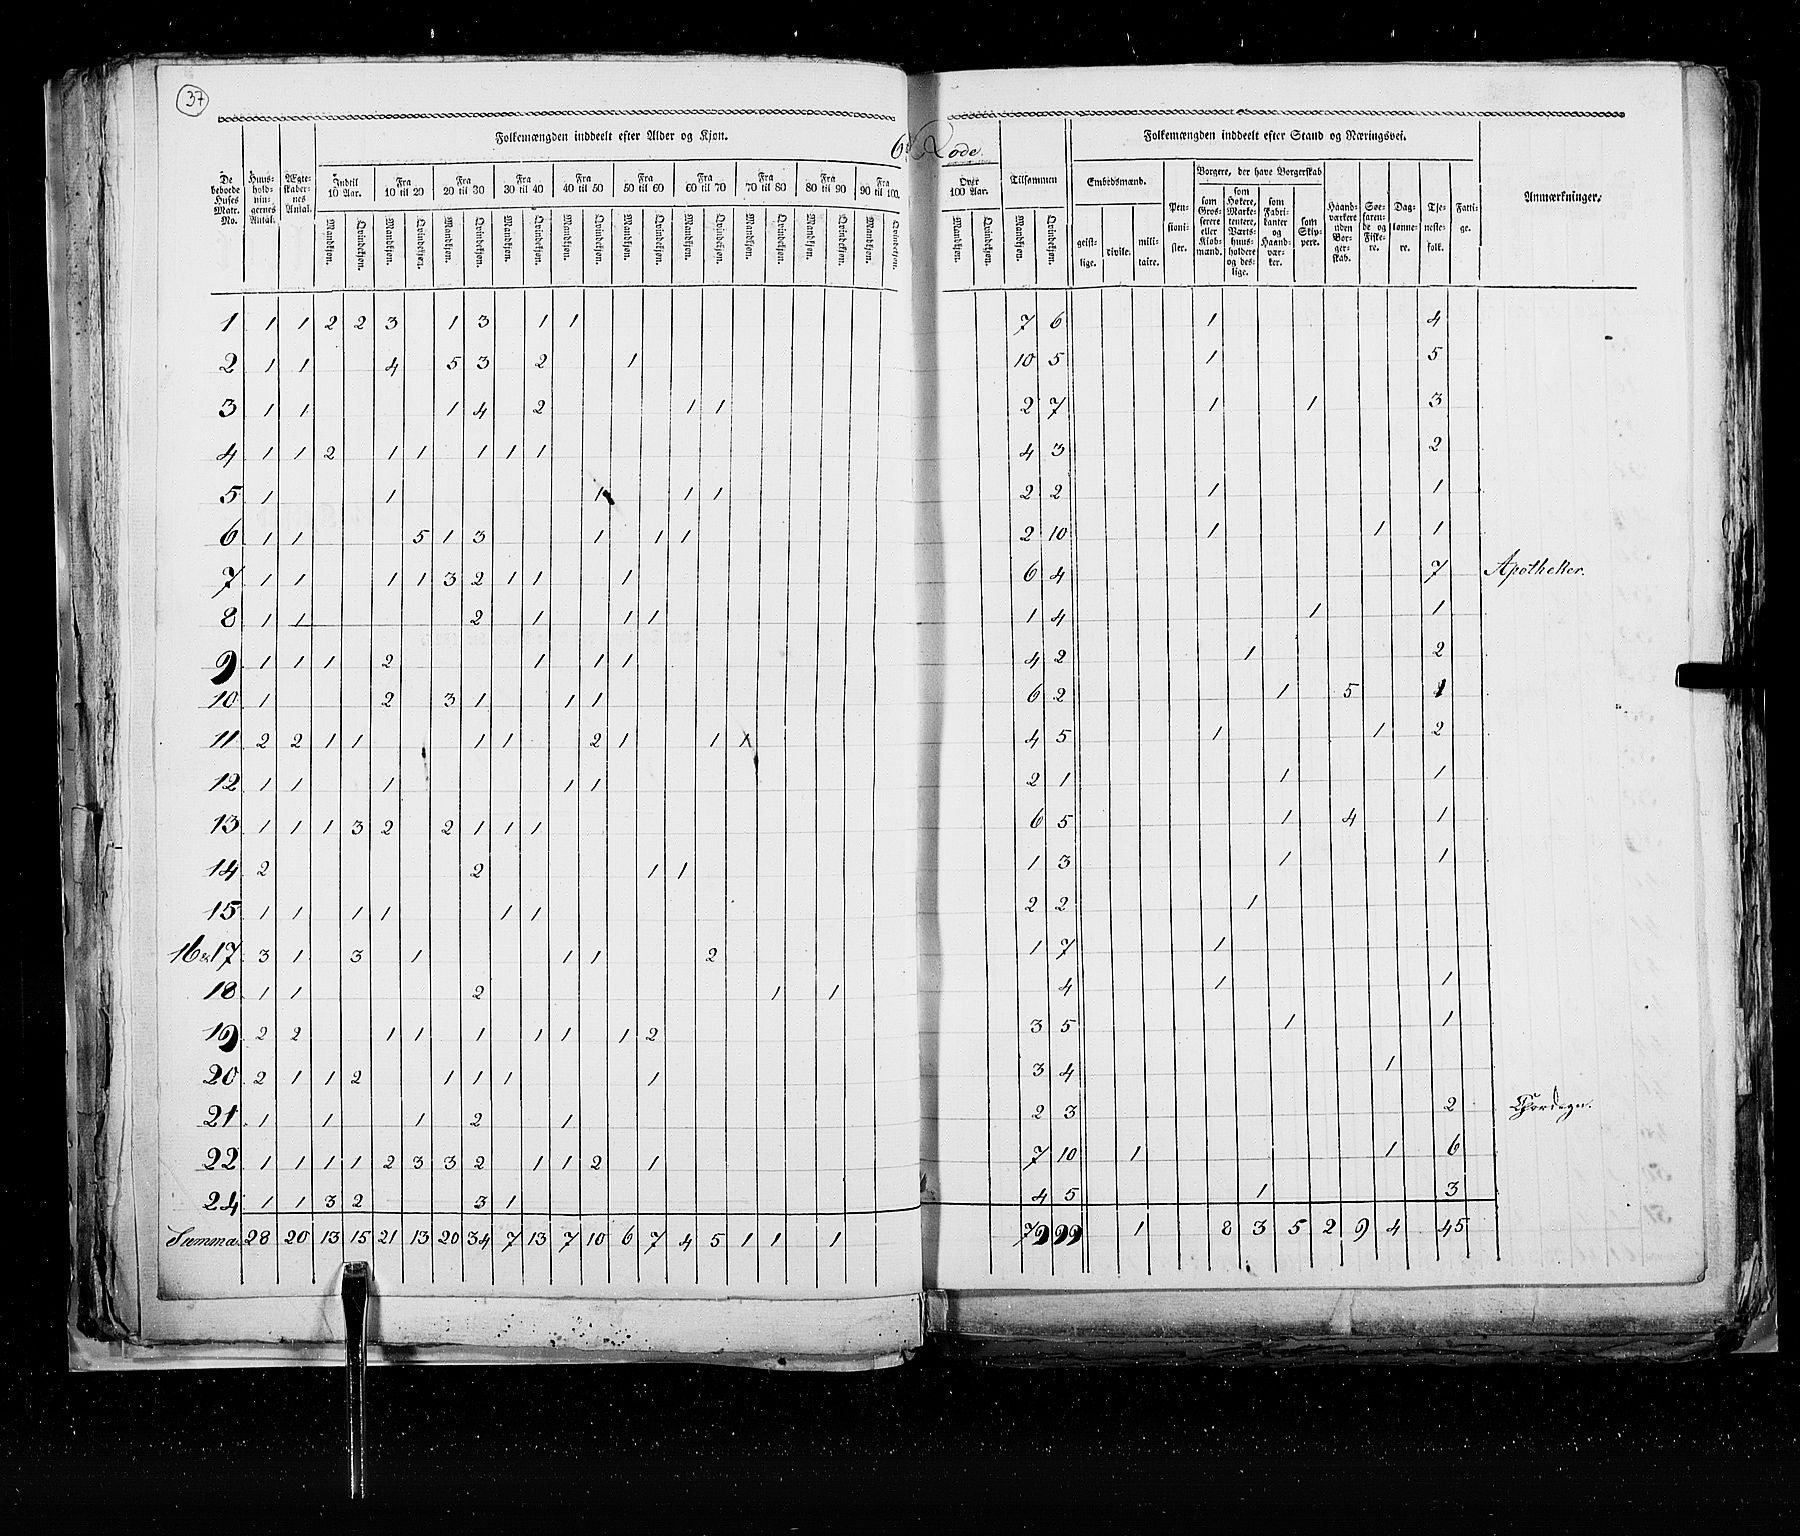 37
Folkemængden inddeelt efter Alder og Kjøn.
6te Rode.
Folkemængden inddeelt efter Stand og Næringsvei.
De beboede Huses Matr. No. Huus-hold-nin-gernes Antal. Ægte-skaber-nes Antal. Indtil 10 Aar. Fra 10 til 20 Fra 20 til 30 Fra 30 til 40 Fra 40 til 50 Fra 50 til 60 Fra 60 til 70 Fra 70 til 80 Fra 80 til 90 Fra 90 til 100. Over 100 Aar. Tilsammen Embedsmænd. Pen-sioni-ster. Borgere, der have Borgerskab Haand-værkere uden Bor-ger-skab. Søe-faren-de og Fiske-re. Dag-lønne-re. Tje-neste-folk. Fatti-ge. Anmærkninger.
Mandkjøn. Qvindekjøn. Mandkjøn. Qvindekjøn. Mandkjøn. Qvindekjøn. Mandkjøn. Qvindekjøn. Mandkjøn. Qvindekjøn. Mandkjøn. Qvindekjøn. Mandkjøn. Qvindekjøn. Mandkjøn. Qvindekjøn. Mandkjøn. Qvindekjøn. Mandkjøn. Qvindekjøn. Mandkjøn. Qvindekjøn. Mandkjøn. Qvindekjøn. geist-lige. civile. mili-taire. som Gros-serere eller Kiøb-mænd. som Høkere, Marke-tentere, Værts-huus-holdere og des-lige. som Fabri-kanter og Haand-vær-ker. som Skip-pere.
1 1 1 2 2 3 1 3 1 1 7 6 1 4
2 1 1 4 5 3 2 1 10 5 1 5
3 1 1 1 4 2 1 1 2 7 1 1 3
4 1 1 2 1 1 1 1 1 4 3 2
5 1 1 1 1 1 2 2 1 1
6 1 1 5 1 3 1 1 1 2 10 1 1 1
7 1 1 1 1 3 2 1 1 1 6 4 7 Apotheker.
8 1 1 2 1 1 1 1 4 1 1
9 1 1 1 2 1 1 1 4 2 1 2
10 1 2 3 1 1 1 6 2 1 5 1
11 2 2 1 1 1 1 2 1 1 1 4 5 1 1 2
12 1 1 1 1 1 2 1 1 1
13 1 1 1 3 2 2 1 1 1 6 5 1 4 1
14 2 2 1 1 1 3 1 1
15 1 1 1 1 1 1 2 2 1
16 & 17 3 1 3 1 1 1 2 1 7 1
18 1 1 2 1 1 4 1 1
19 2 2 1 1 1 1 1 1 2 3 5 1 1
20 2 1 1 2 1 1 1 1 3 4 1
21 1 1 1 2 1 2 3 2
22 1 1 1 1 2 3 3 2 1 1 2 1 7 10 1 1 6
24 1 1 3 2 3 1 4 5 1 3
Summa. 28 20 13 15 21 13 20 34 7 13 7 10 6 7 4 5 1 1 1 79 99 1 8 3 5 2 9 4 45